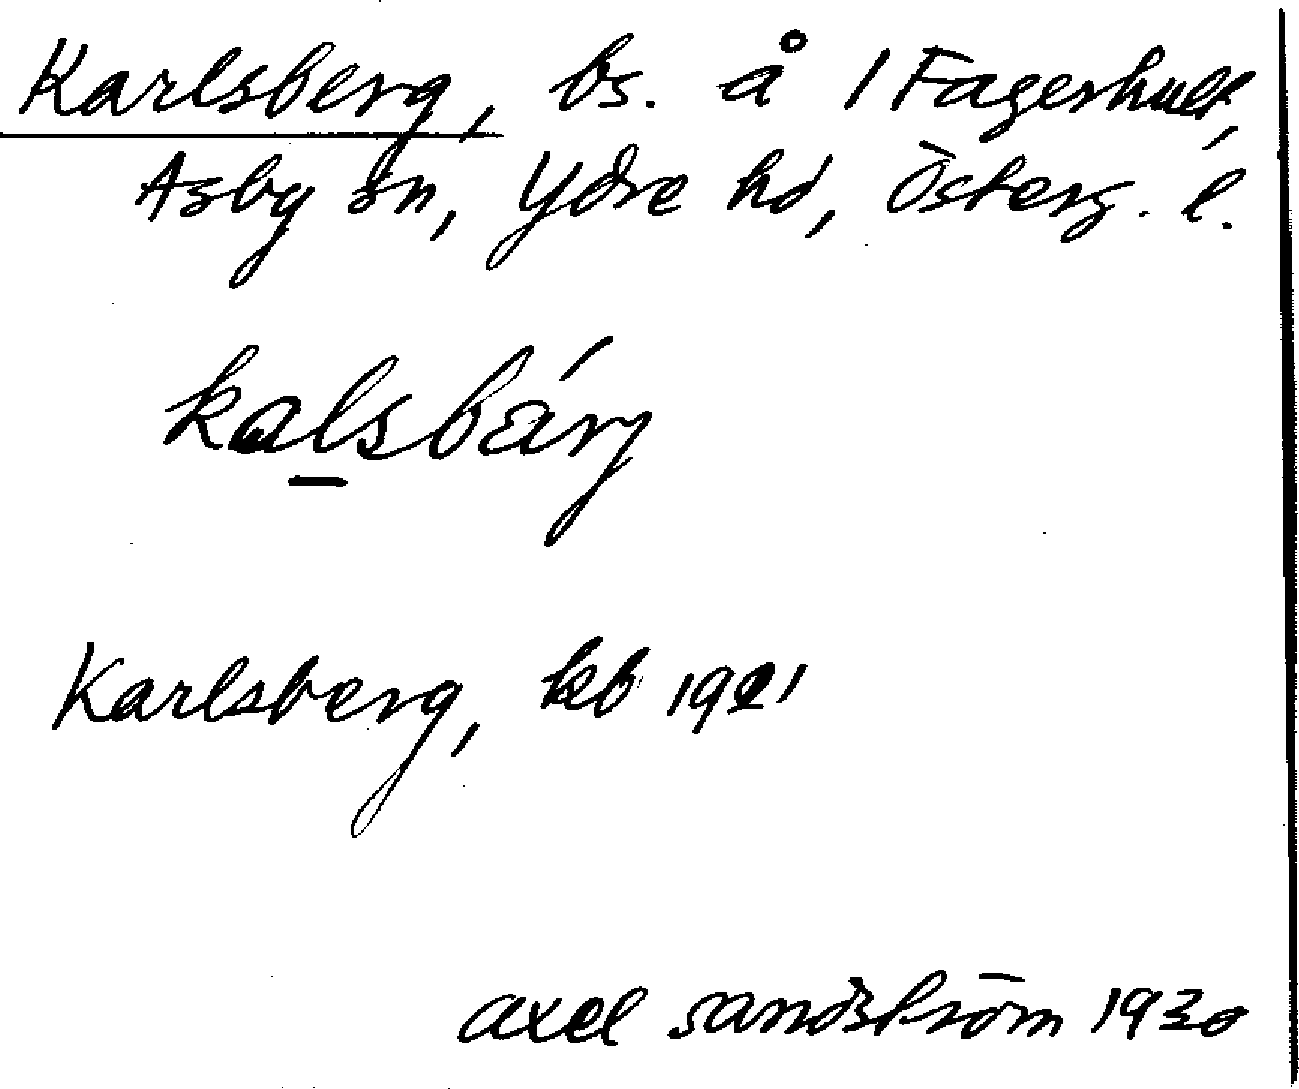 Karlsberg, bs. å 1 Fagerhult,
Asby sn, Ydre hd, Österg. l.
kalsbärj
Karlsberg, kb 1921
axel sandström 1930